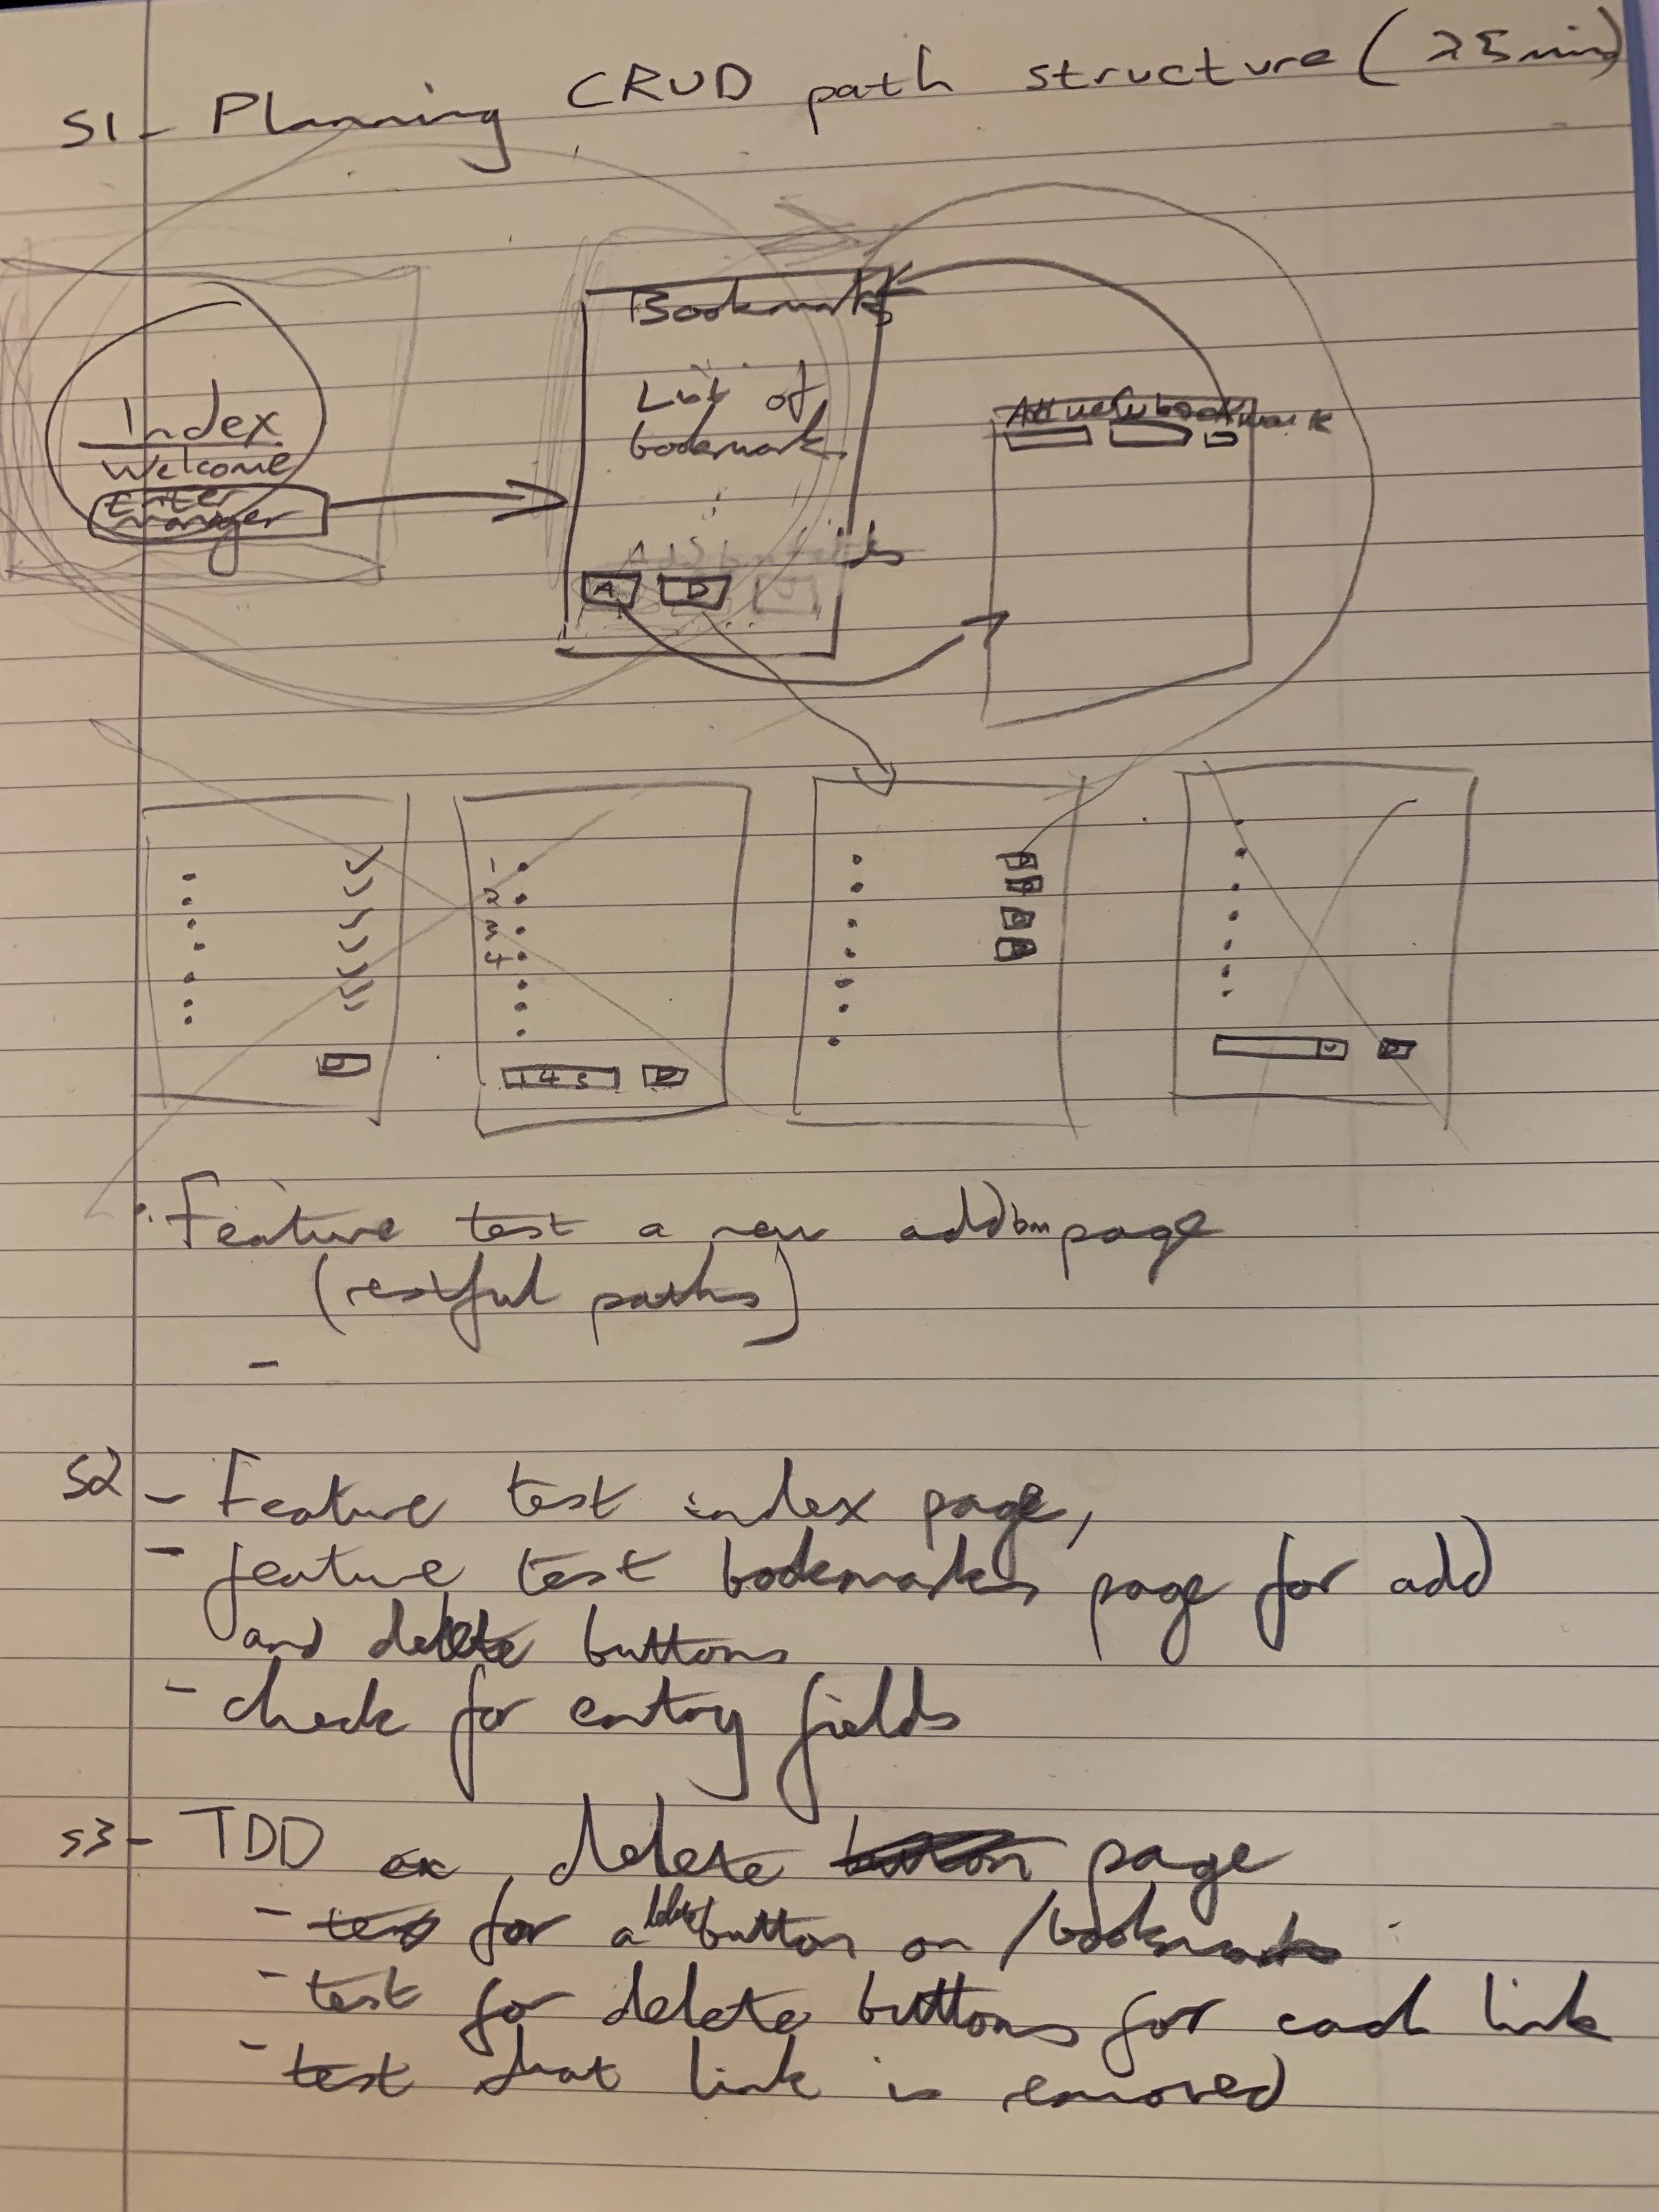 S1 - Planning CRUD path structure (25min)
Index
Welcome
Enter
manager
Bookmarks
List of
bookmark
A D U
bookmark
1
2
3
4
D
1 4 5 D
D
D
D
D
D
· Feature test a new add bm page
(restful paths)
-
S2 - Feature test index page,
- feature test bookmarks page for add
and delete buttons
- check for entry fields
S3 - TDD delete button page
- test for a delete button on /bookmarks
- test for delete buttons for each link
- test that link is removed